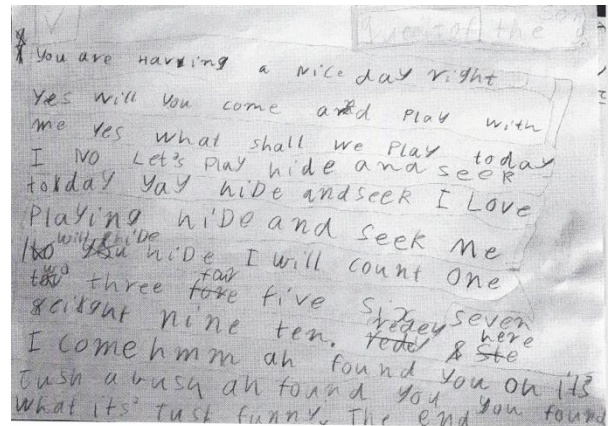 of the
You are Having a Nice day right
Yes will you come and Play with
me Yes what shall we Play today
I NO Let's Play hide and seek
today yay hiDe andseek I Love
Playing hiDe and seek Me
will hiDe
you hiDe I will count one
three five six seven
four
fore
eight nine ten. redey here
I come hmm ah found you oh its
Tush a bush ah found you you found
what its Tust funny. The end